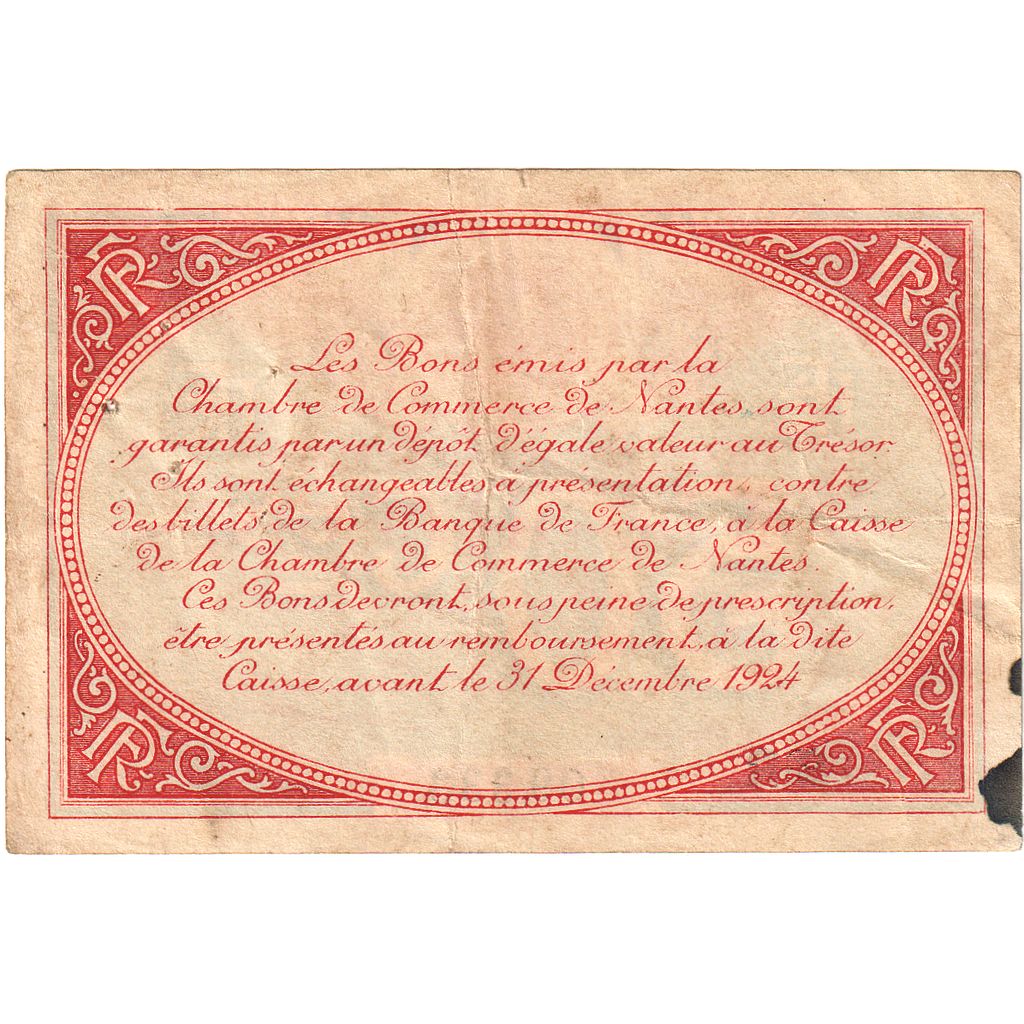 RF RF
Les Bons émis par la
Chambre de Commerce de Nantes, sont
garantis par un dépôt d'égale valeur au Trésor.
Ils sont échangeables à présentation, contre
des billets de la Banque de France, à la Caisse
de la Chambre de Commerce de Nantes.
Ces Bons devront, sous peine de prescription,
être présentés au remboursement, à la dite
Caisse, avant le 31 Décembre 1924
RF RF